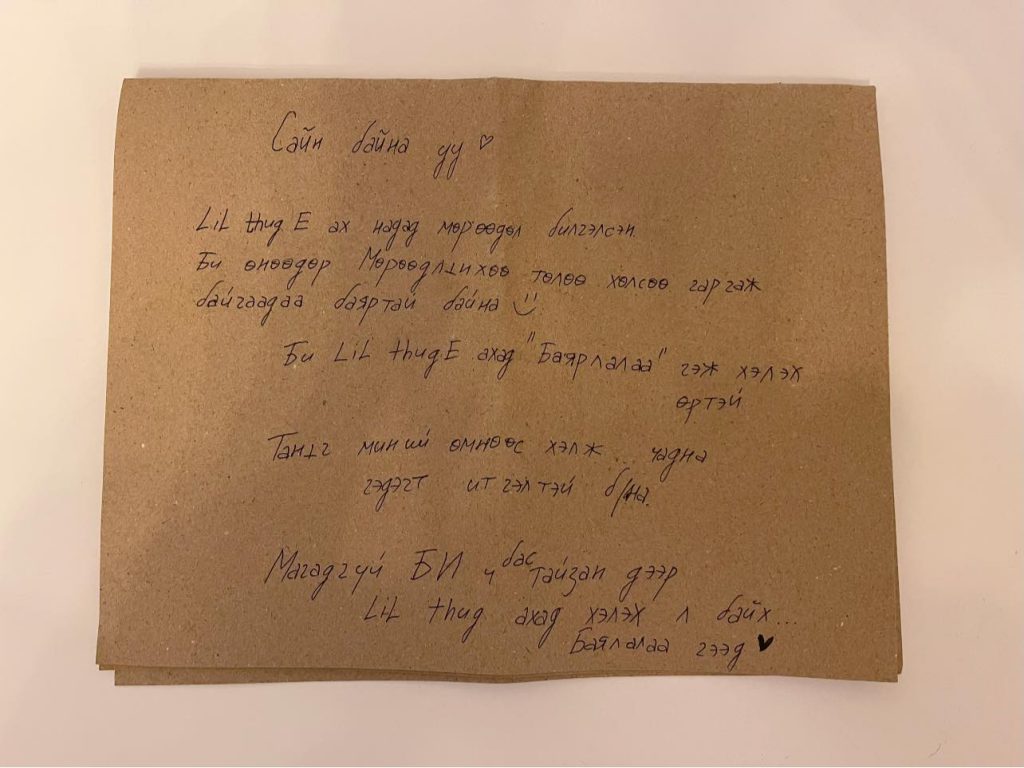 Сайн байна уу ♡
LiL thug E ах надад мөрөөдөл билгэлсэн
Би өнөөдөр Мөрөөдлынхөө төлөө хөлсөө гаргаж
байгаадаа баяртай байна :)
Би LiL thug E ахад "Баярлалаа" гэж хэлэх
өртэй
Таныг миний өмнөөс хэлж чадна
гэдэгт итгэлтэй б/на.
Магадгүй БИ ч бас тайзан дээр
LiL thug ахад хэлэх л байх...
Баялалаа гээд ♥